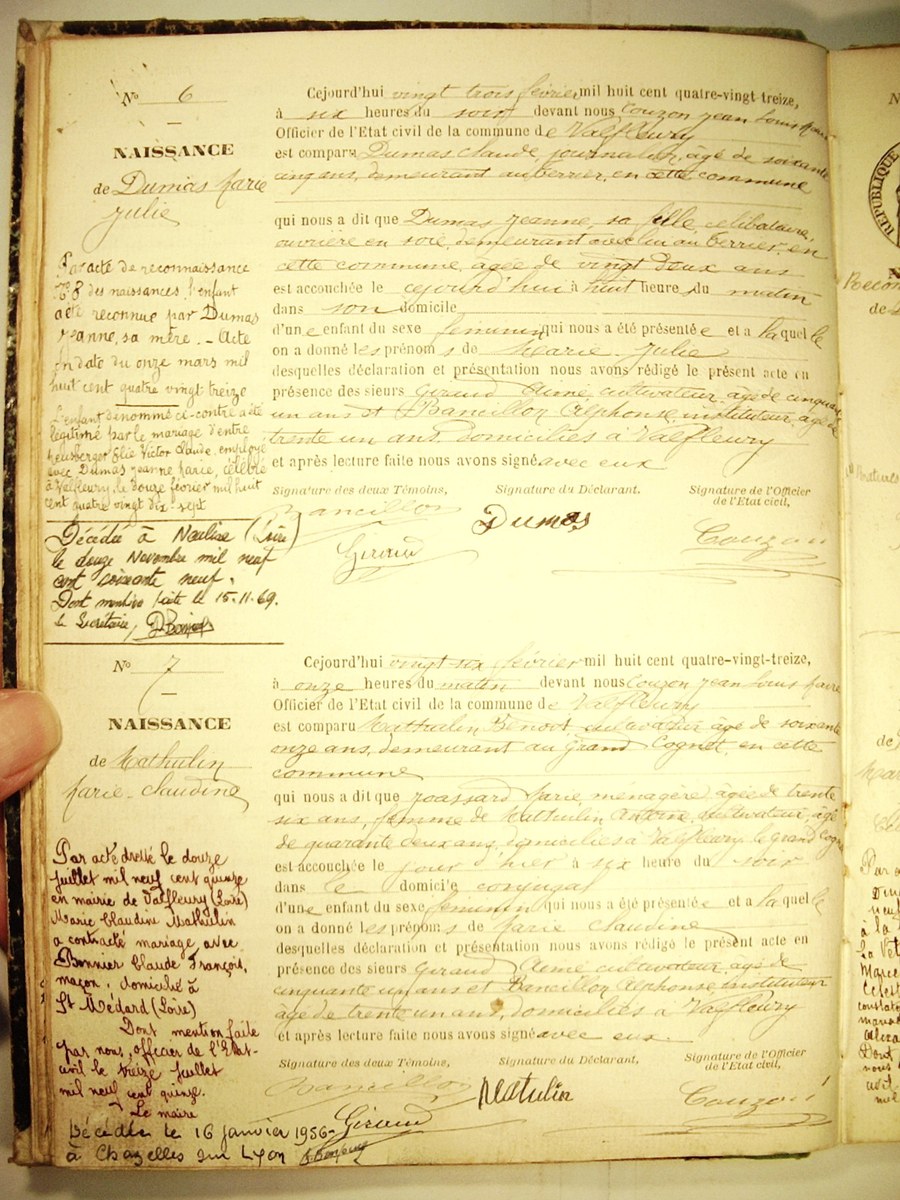 N° 6
NAISSANCE
de Dumas Marie
Julie
Par acte de reconnaissance
N° 8 des naissances l'enfant
a été reconnue par Dumas
Jeanne, sa mère. - Acte
en date du onze mars mil
huit cent quatre vingt treize
L'enfant dénommé ci-contre a été
légitimé par le mariage d'entre
Elie Victor Claude, employé
avec Dumas Jeanne Marie, célébré
à Valfleury, le douze février mil huit
cent quatre vingt dix-sept
Décédée à Naulise (Loire)
le douze Novembre mil neuf
cent soixante neuf.
Dont mention faite le 15-11-69.
le Secrétaire,
Cejourd'hui vingt trois février mil huit cent quatre-vingt-treize,
à six heures du soir devant nous Couzon Jean Louis Marie
Officier de l'Etat civil de la commune de Valfleury
est comparu Dumas Claude, journalier, âgé de soixante
cinq ans, demeurant au berrier, en cette commune
qui nous a dit que Dumas Jeanne, sa fille, célibataire,
ouvrière en soie, demeurant avec lui au berrier, en
cette commune, agée de vingt deux ans
est accouchée le cejourd'hui à huit heures du matin
dans son domicile
d'une enfant du sexe féminin qui nous a été présentée et a laquelle
on a donné les prénoms de Marie Julie
desquelles déclaration et présentation nous avons rédigé le présent acte en
présence des sieurs Giraud Aimé, cultivateur, âgé de cinquante
un ans et Bancillon Alphonse, instituteur, âgé de
trente un ans, domiciliés à Valfleury
et après lecture faite nous avons signé avec eux
Signature des deux Témoins, Signature du Déclarant, Signature de l'Officier
de l'Etat civil,
Bancillon Dumas Couzon
Giraud
N° 7
NAISSANCE
de Mathulin
Marie-Claudine
Par acte dressé le douze
juillet mil neuf cent quinze
en mairie de Valfleury (Loire)
Marie Claudine Mathulin
a contracté mariage avec
Bonnier Claude François,
maçon, domicilié à
St Médard (Loire)
Dont mention faite
par nous, officier de l'Etat-
civil le treize juillet
mil neuf cent quinze.
Le maire
Décédée le 16 janvier 1956
à Chazelles sur Lyon
Cejourd'hui vingt-six février mil huit cent quatre-vingt-treize,
à onze heures du matin devant nous Couzon Jean Louis Marie
Officier de l'Etat civil de la commune de Valfleury
est comparu Mathulin Benoit, cultivateur, âgé de soixante
onze ans, demeurant au Grand Cognet, en cette
commune
qui nous a dit que Joassard Marie, ménagère, agée de trente
six ans, femme de Mathulin Antoine, cultivateur, âgé
de quarante deux ans, domiciliés à Valfleury, le grand Cognet
est accouchée le jour d'hier à six heure du soir
dans le domicile conjugal
d'une enfant du sexe féminin qui nous a été présentée et a laquelle
on a donné les prénoms de Marie Claudine
desquelles déclaration et présentation nous avons rédigé le présent acte en
présence des sieurs Giraud Aimé cultivateur, âgé de
cinquante un ans et Bancillon Alphonse instituteur
âgé de trente un ans, domiciliés à Valfleury
et après lecture faite nous avons signé avec eux.
Signature des deux Témoins, Signature du Déclarant, Signature de l'Officier
de l'Etat civil,
Bancillon Matulin Couzon
Giraud